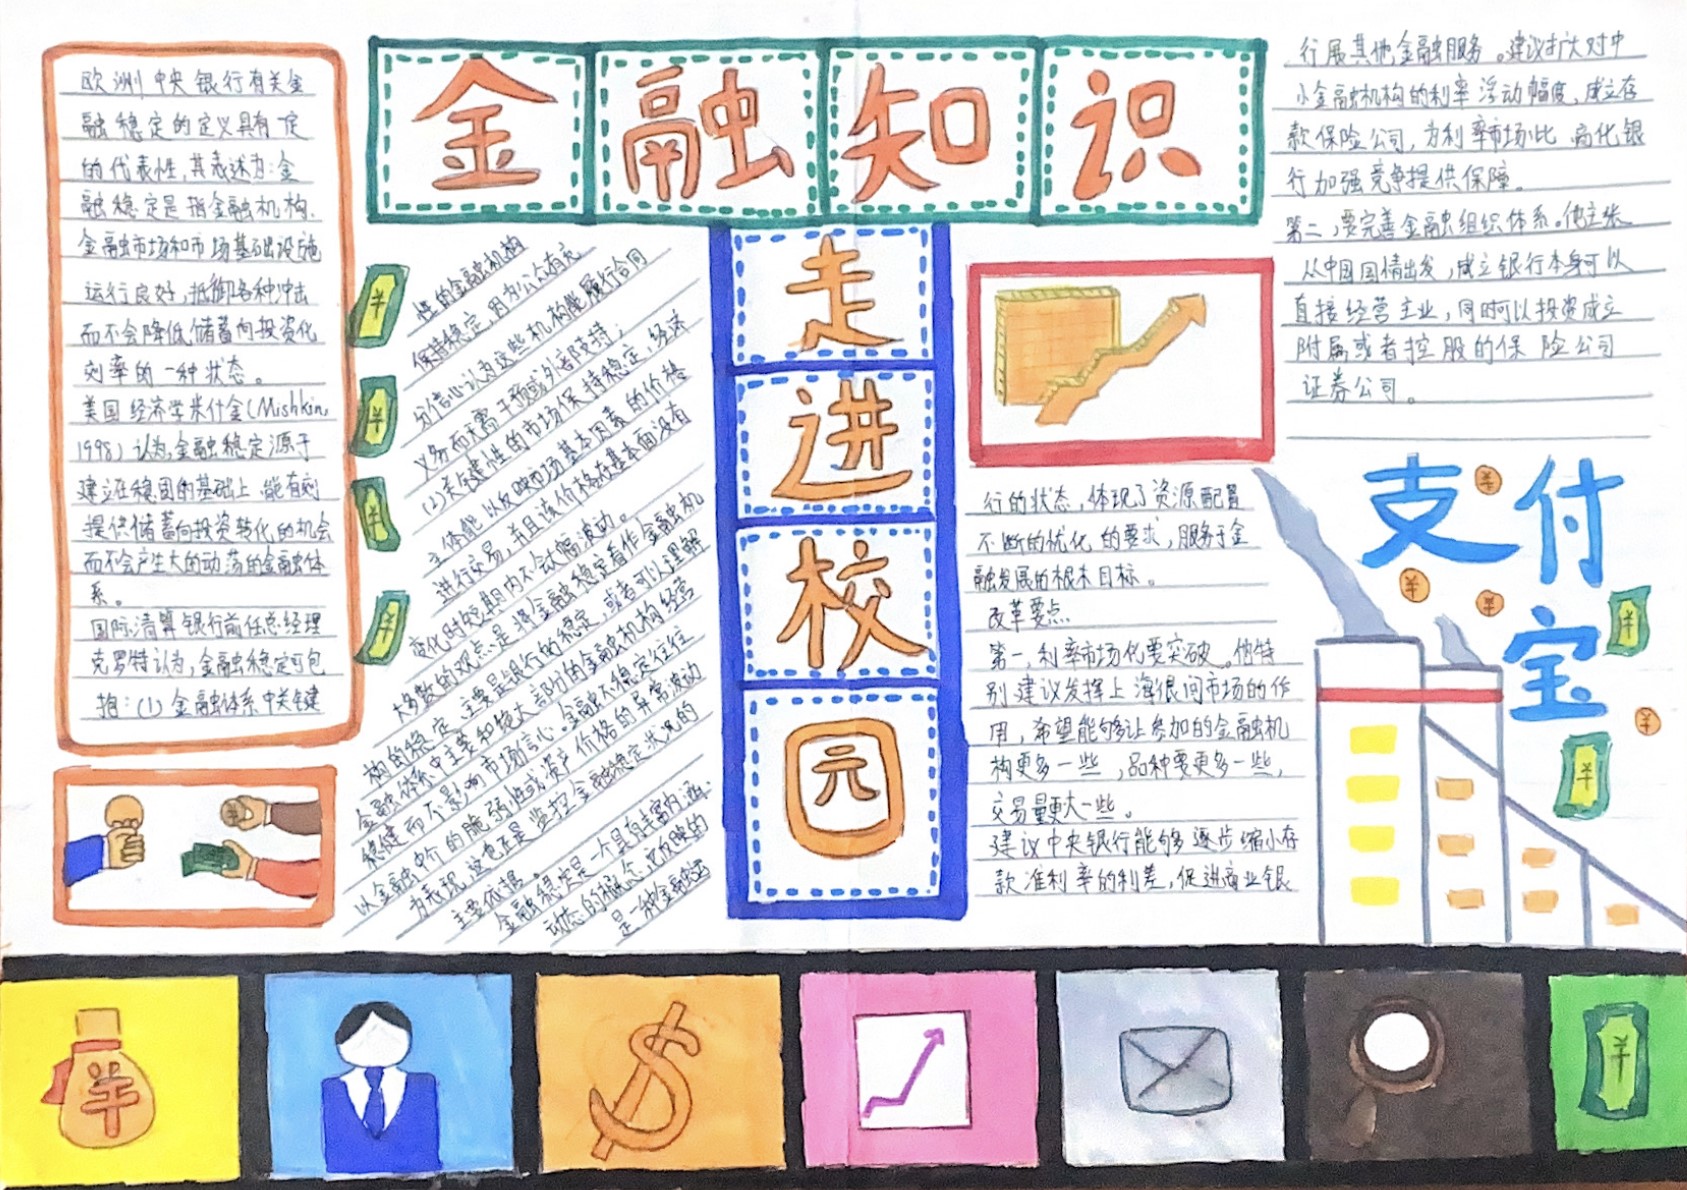 金融知识
走
进
校
园
欧洲中央银行有关金
融稳定的定义具有一定
的代表性,其表述为:金
融稳定是指金融机构、
金融市场和市场基础设施
运行良好,抵御各种冲击
而不会降低储蓄向投资化
效率的一种状态。
美国经济学米什金(Mishkin,
1998)认为,金融稳定源于
建立在稳固的基础上、能有效
提供储蓄向投资转化的机会
而不会产生大的动荡的金融体
系。
国际清算银行前任总经理
克罗特认为,金融稳定可包
括:(1)金融体系中关键
性的金融机构
保持稳定,因为公众有充
分信心认为这些机构能履行合同
义务而无需干预或外部支持;
(2)关键性的市场保持稳定,经济
主体能以反映市场基本因素的价格
进行交易,并且该价格在基本面没有
变化时短期内不会大幅波动。
大多数的观点是将金融稳定看作金融机
构的稳定,主要是银行的稳定,或者可以理解
金融体系中主要和绝大部分的金融机构经营
稳健而不影响市场信心。金融不稳定往往
以金融中介的脆弱性或资产价格的异常波动
为表现,这也正是监控金融稳定状况的
主要依据。
金融稳定是一个具有丰富内涵、
动态的概念,它反映的
是一种金融运
行的状态,体现了资源配置
不断的优化的要求,服务于金
融发展的根本目标。
改革要点
第一,利率市场化要突破。他特
别建议发挥上海银间市场的作
用,希望能够让参加的金融机
构更多一些,品种要更多一些,
交易量更大一些。
建议中央银行能够逐步缩小存
款准利率的利差,促进商业银
行展其他金融服务。建议扩大对中
小金融机构的利率浮动幅度,成立存
款保险公司,为利率市场化 商化银
行加强竞争提供保障。
第二,要完善金融组织体系。他主张
从中国国情出发,成立银行本身可以
直接经营主业,同时可以投资成立
附属或者控股的保险公司
证券公司。
支付
宝